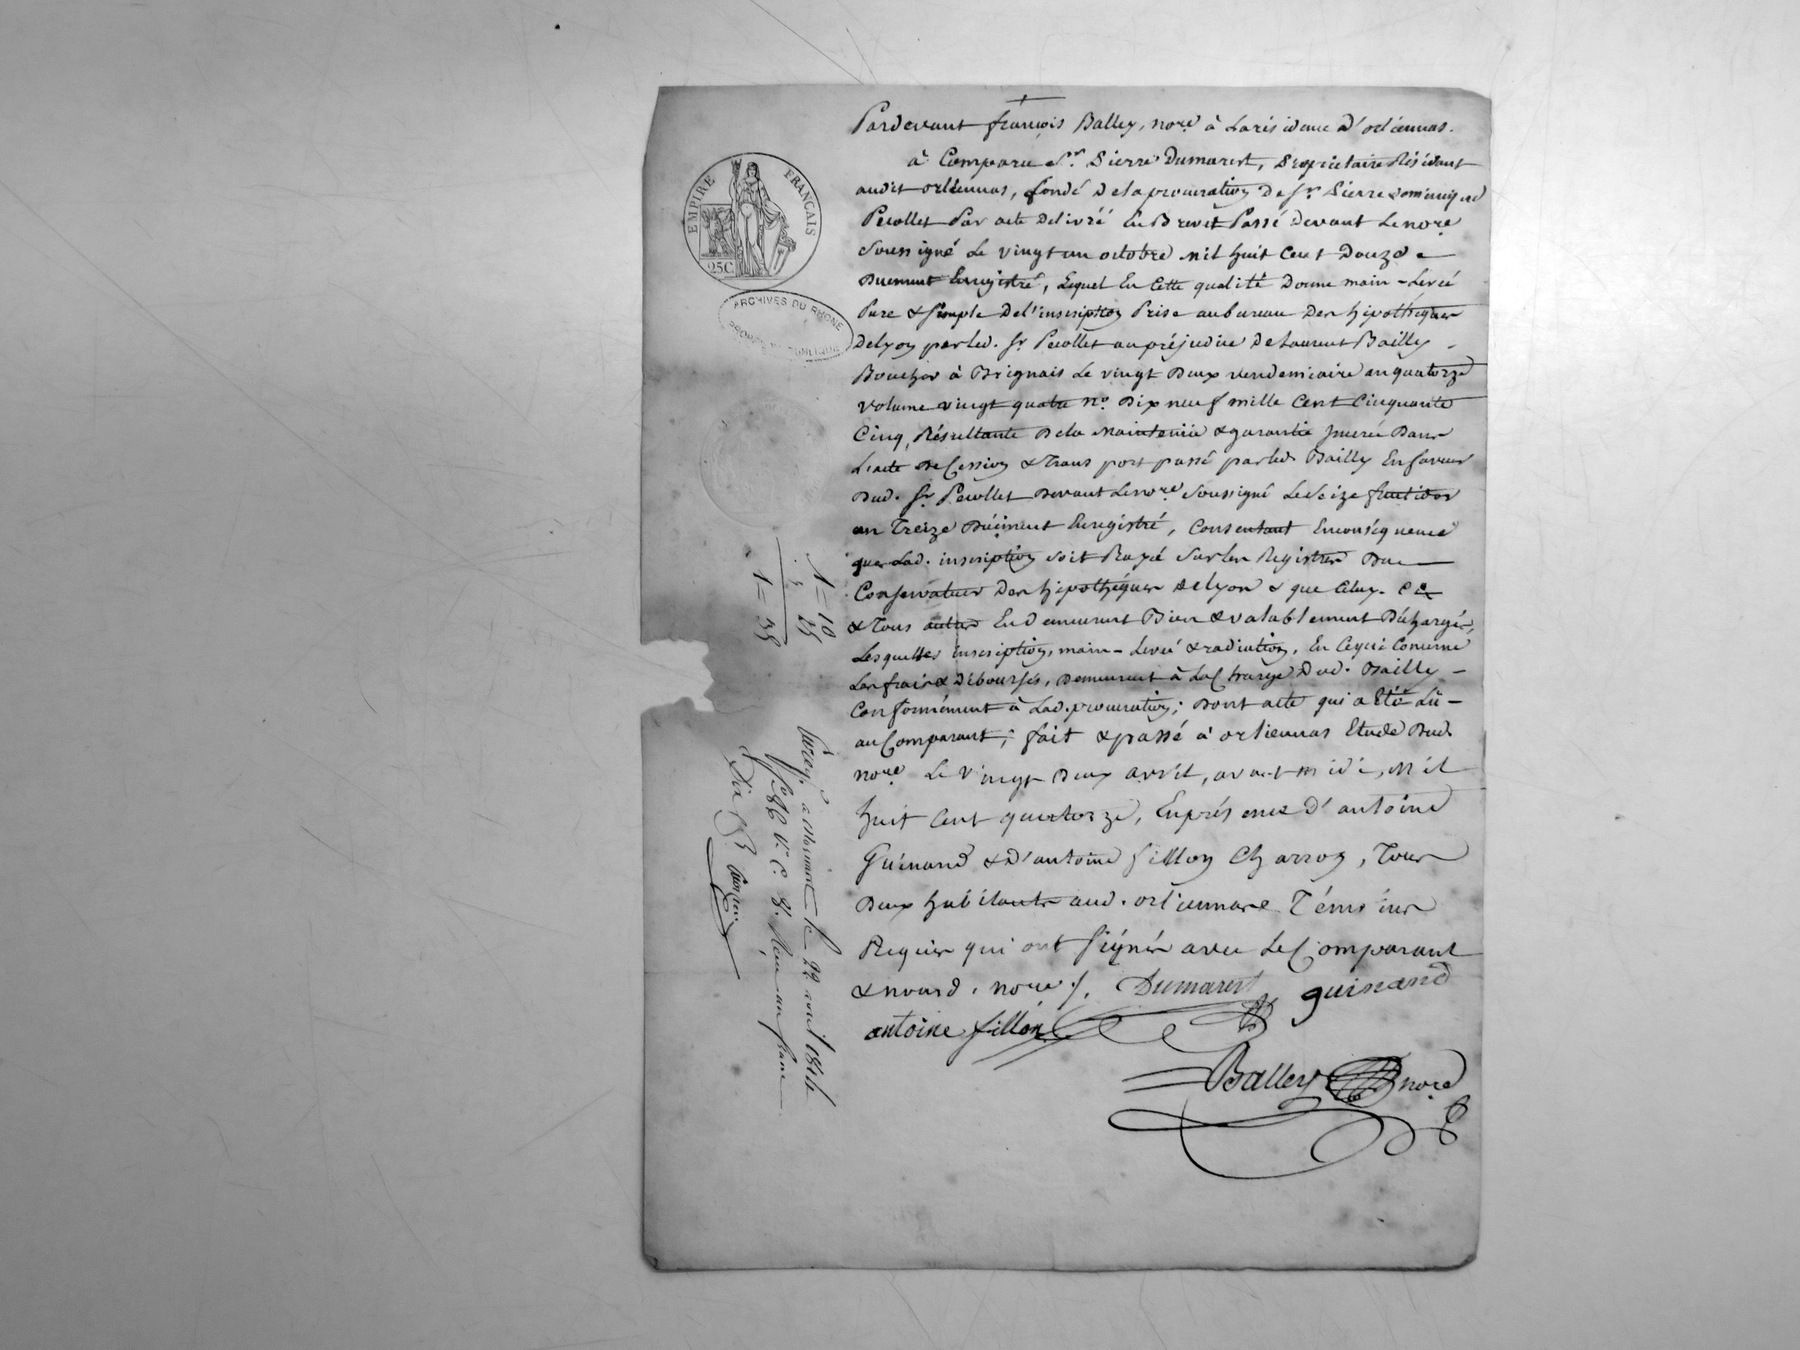 EMPIRE FRANÇAIS
25C
ARCHIVES DU RHONE
Pardevant françois Balley, nore. à La résidence d'orliennas.
à Comparu Sr. Pierre Dumarest, Propriétaire Résidant
audit orliennas, fondé de la procuration de Sr. Pierre dominique
Pecollet Par acte délivré En Brevet Passé Devant Le nore.
Soussigné Le vingt un octobre mil huit Cent Douze
Duement Enregistré, Lequel En Cette qualité Donne main-Levée
Pure & Simple De l'inscription Prise au bureau Des hipothéques
De lyon par led. Sr. Pecollet au préjudice De Laurent Bailly
Boucher à Brignais Le vingt Deux vendemiaire an quatorze
volume vingt quatre no. Dix neuf mille Cent Cinquante
Cinq, Résultante De la Maintenüe & garantie Dans
L'acte De Cession & Transport passé par led. Bailly En faveur
Dud. Sr. Pecollet Devant Le nore. Soussigné Le Seize fructidor
an Treize Düement Enregistré, Consentant En conséquence
que Lad. inscription soit Rayée Sur les Registres Du
Conservateur Des hipothéques De lyon & que Celuy-Ci
& Tous autres En Demeurent Bien & valablement Déchargés,
Lesquelles inscription, main-Levée & radiation, En Ce qui Concerne
Les frais & Déboursés, Demeurent à La Charge Dud. Bailly
Conformément à Lad. procuration; Dont acte qui a Eté Lû
au Comparant; fait & passé à orliennas Etude Dud.
nore. Le vingt Deux avril, avant midi, Mil
huit Cent quatorze, En présence D'antoine
Guinand & D'antoine fillon Charron, Tous
Deux habitants aud. orliennas Témoins
Requis qui ont Signés avec Le Comparant
& noud. nore. /. Dumarest guinand
antoine fillon
Balley nore
1 = 10
25
1 = 35
Enreg. à Mornant le 22 avril 1814
fo. 86 vo. C. 8. Reçu un franc
Dix Cs.